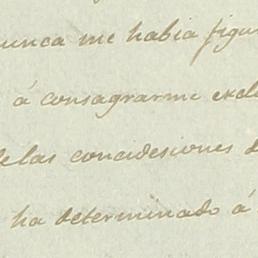 nunca me habia figu
á consagrarme exclu
de las concidesiones d
ha determinado á